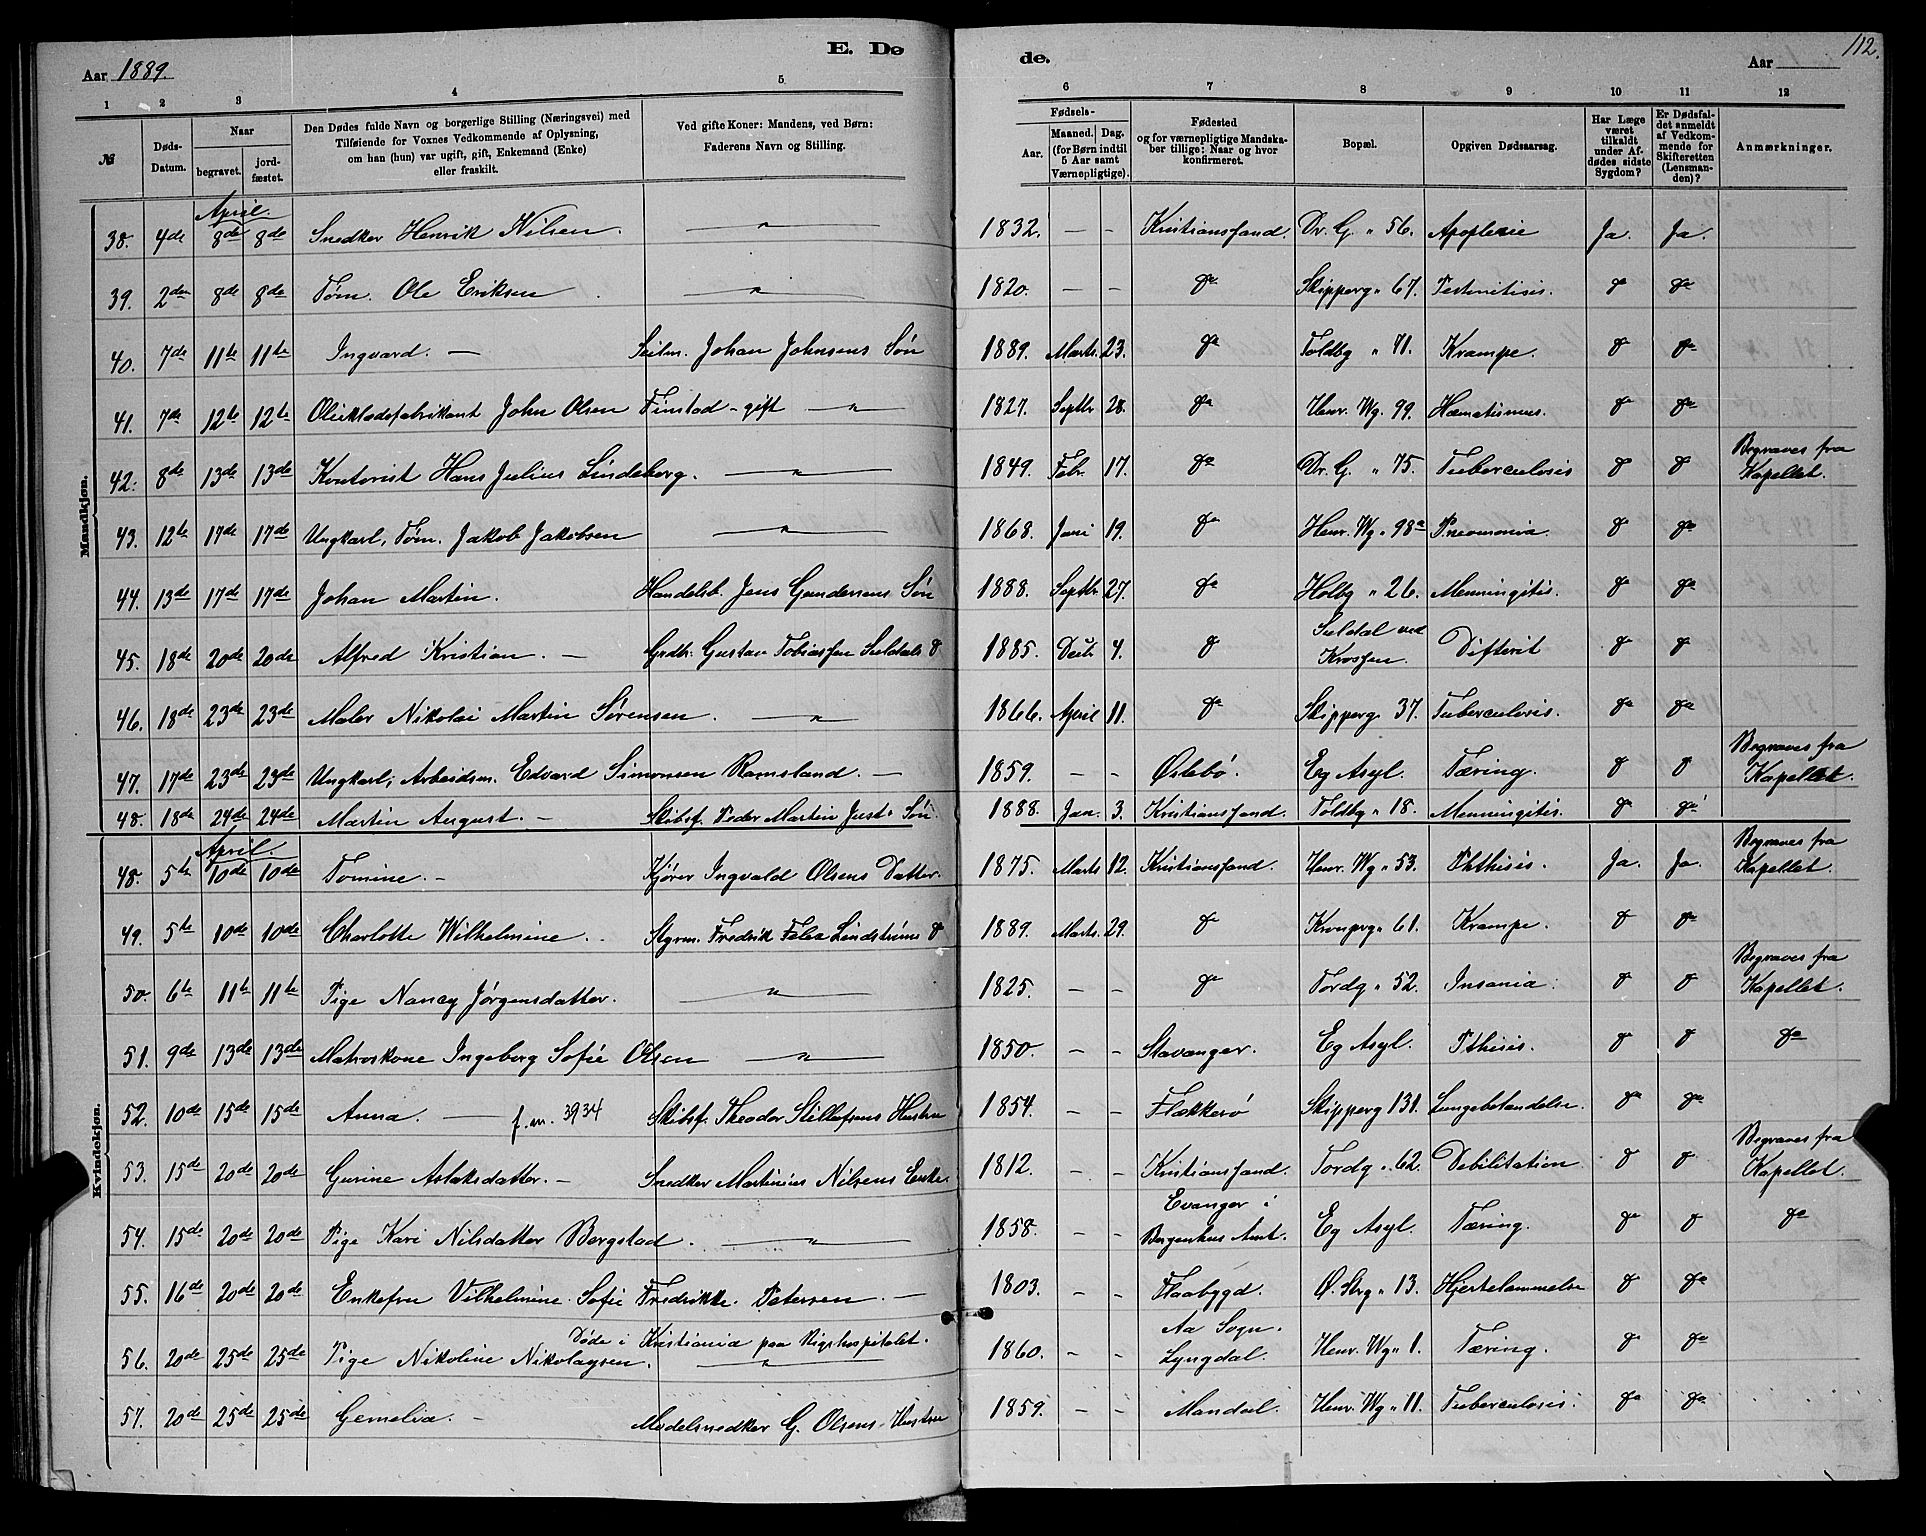 E. Dø de. 112.
Aar 1889. Aar
1 2 3 4 5 6 7 8 9 10 11 12
№ Døds-Datum. Naar begravet. jordfæstet. Den Dødes fulde Navn og borgerlige Stilling (Næringsvei) med Tilføiende for Voxnes Vedkommende af Oplysning, om han (hun) var ugift, gift, Enkemand (Enke) eller fraskilt. Ved gifte Koner: Mandens, ved Børn: Faderens Navn og Stilling. Fødsels- Aar. Maaned. Dag. (for Børn indtil 5 Aar samt Værnepligtige). Fødested og for værnepligtige Mandskaber tillige: Naar og hvor konfirmeret. Bopæl. Opgiven Dødsaarsag. Har Læge været tilkaldt under Afdødes sidste Sygdom? Er Dødsfaldet anmeldt af Vedkommende for Skifteretten (Lensmanden)? Anmærkninger.
Mandkjøn.
April.
38. 4de 8de 8de Snedker Henrik Nilsen. — " — 1832. — – Kristianssand. Dr. G. " 56. Apoplexie Ja. Ja.
39. 2den 8de 8de Tøm. Ole Eriksen — " — 1820. — – do Skipperg " 67. do do
40. 7de 11te 11te Ingvard. — Seilm. Johan Johnsens Søn 1889. Marts. 23. do Toldbg " 71. Krampe. do do
41. 7de 12te 12te Olieklædefabrikant John Olsen Finstad – gift — " — 1827. Septbr 28. do Henr. Wg. 99. do do
42. 8de 13de 13de Kontorist Hans Julius Lindeberg. — " — 1849. Febr. 17. do Dr. G. " 75. Tuberculosis do do Begraves fra Kapellet.
43. 12te 17de 17de Ungkarl, Tøm. Jakob Jakobsen — " — 1868. Juni 19. do Henr. Wg " 98a Pneomonia. do do
44. 13de 17de 17de Johan Martin. Handelsb. Jens Gundersens Søn 1888. Septbr. 27. do Holbg " 26. Menningitis. do do
45. 18de 20de 20de Alfred Kristian. — Grdbr. Gustav Tobiassen Suldals do 1885. Decbr 4. do Suldal ved Krossen. Difterit do do
46. 18de 23de 23de Maler Nikolai Martin Sørensen. — " — 1866. April 11. do Skipperg. 37. Tuberculosis. do do
47. 17de 23de 23de Ungkarl, Arbeidsm. Edvard Simonsen Ramsland. — 1859. – – Øslebö. Eg Asyl. Tæring. do do Begraves fra Kapellet.
48. 18de 24de 24de Martin August. – Skibsf. Peder Martin Just's Søn. 1888. Jan. 3. Kristianssand. Toldbg " 18. Menningitis. do do
Kvindekjøn.
April.
48. 5te 10de 10de Tomine. – Kjører Ingvald Olsens Datter. 1875. Marts 12. Kristianssand. Henr. Wg " 53. Phthisis. Ja. Ja. Begraves fra Kapellet.
49. 5te 10de 10de Charlotte Wilhelmine. – Styrm. Fredrik Felix Lindstrøms do 1889. Marts. 29. do Kronprg " 61. Krampe. do do
50. 6te 11te 11te Pige Nancy Jørgensdatter. — " — 1825. – – do Tordg " 52. Insania. do do Begraves fra Kapellet.
51. 9de 13de 13de Matroskone Ingeborg Sofie Olsen — " — 1850. – – Stavanger. Eg Asyl. Pthisis. do do do
52. 10de 15de 15de Anna. — f. m. 3934 Skibsf. Theodor Stellefsens Hustru 1854. – – Flækkerö Skipperg 131. Lungebetændelse. do do
53. 15de 20de 20de Gurine Aslaksdatter. – Snedker Martinius Nilsens Enke. 1812. – – Kristianssand. Tordg " 62. Debilitation. do do Begraves fra Kapellet.
54. 15de 20de 20de Pige Kari Nilsdatter Bergstad. — " — 1858. – – Evanger i Bergenhus Amt. Eg Asyl. Tæring. do do do
55. 16de 20de 20de Enkefru Vilhelmine Sofie Fredrikke Petersen. — 1803. – – Flaabygd. Ø. Strg " 13. Hjertelammelse do do
56. 20de 25de 25de Pige Nikoline Nikolaysen. Døde i Kristiania paa Rigshospitalet. — " — 1860. – – Aa Sogn. Lyngdal. Henr. Wg " 1. Tæring. do do
57. 20de 25de 25de Gemelia. – Modelsnedker G. Olsens Hustru 1859. – – Mandal. Henr. Wg " 11. Tuberculosis. do do